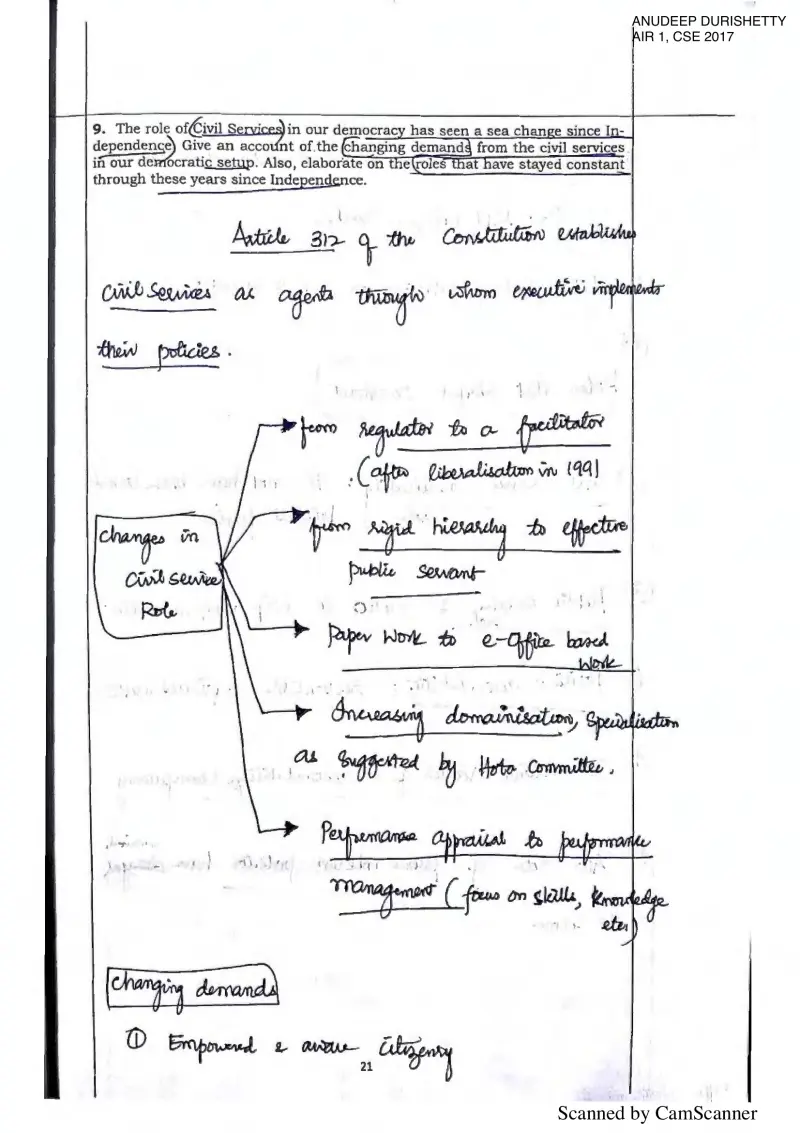 ANUDEEP DURISHETTY
AIR 1, CSE 2017
9. The role of Civil Services in our democracy has seen a sea change since In-
dependence. Give an account of the changing demands from the civil services
in our democratic setup. Also, elaborate on the roles that have stayed constant
through these years since Independence.
Article 312 of the Constitution establishes
Civil Services as agents through whom executive implements
their policies.
from regulator to a facilitator
(after liberalisation in 1991
from rigid hierarchy to effective
public servant
Changes in
Civil Service
Role
Paper Work to e-Office based
Work
Increasing domainisation, Specialisation
as suggested by Hota Committee.
Performance appraisal to performance
management (focus on skills, knowledge
etc)
Changing demands
① Empowered & aware citizenry
21
Scanned by CamScanner